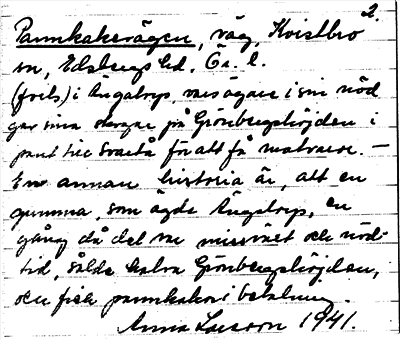 2.
Pannkakevägen, väg, Kvistbro
sn, Edsbergs hd, Ör. l.
(forts.) i Ängatorp, vars ägare i sin nöd
gav sina skogar på Grönbergshöjden i
pant till Svartå för att få matvaror. —
En annan historia är, att en
gumma, som ägde Ängatorp, en
gång då det var missväxt och nöd-
tid, sålde halva Grönbergshöjden,
och fick pannkakor i betalning.
Anna Larsson 1941.